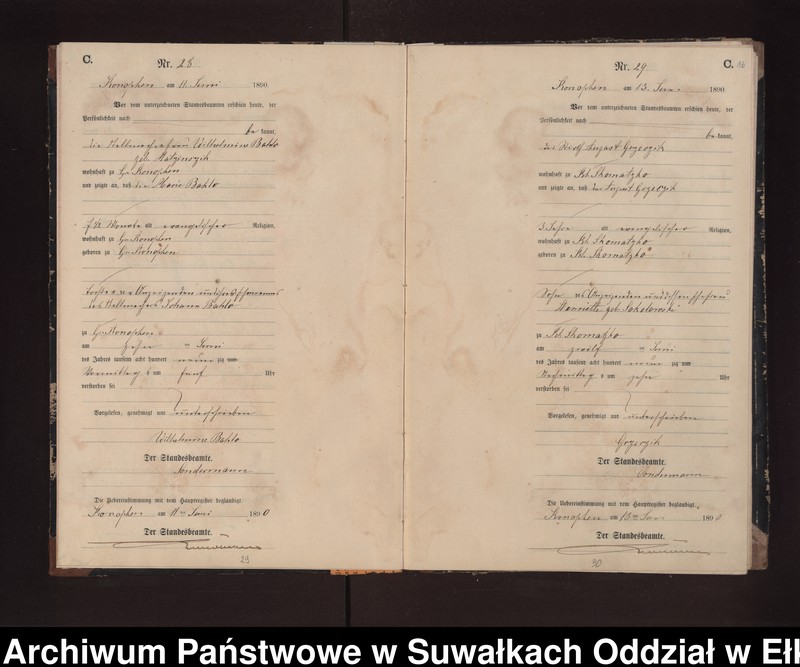 C.
Nr. 28
Konophen am 11 Juni 1890.
Vor dem unterzeichneten Standesbeamten erschien heute, der
Persönlichkeit nach
be kannt,
die Wilhelmine Bahlo
geb.
wohnhaft zu Gr. Konophen
und zeigte an, daß die Marie Bahlo
Monate alt evangelischer Religion,
wohnhaft zu Gr. Konophen
geboren zu Gr. Konophen
Tochter der Anzeigenden und
des Johann Bahlo
zu Gr. Konophen
am zehn ten Juni
des Jahres tausend acht hundert neun zig
Vormittag s um fünf Uhr
verstorben sei
Vorgelesen, genehmigt und unterschrieben
Wilhelmine Bahlo
Der Standesbeamte.
Sondermann
Die Uebereinstimmung mit dem Hauptregister beglaubigt.
Konophen am 11 ten Juni 1890
Der Standesbeamte.
29
C.
Nr. 29
Konophen am 13. Juni 1890
Vor dem unterzeichneten Standesbeamten erschien heute, der
Persönlichkeit nach
be kannt,
der August
wohnhaft zu Kl. Skomatzko
und zeigte an, daß der August
3 Jahre alt evangelischer Religion,
wohnhaft zu Kl. Skomatzko
geboren zu Kl. Skomatzko
Sohn des Anzeigenden und dessen Ehefrau
geb. Sokolowski
zu Kl. Skomatzko
am zwölf ten Juni
des Jahres tausend acht hundert neun zig
Nachmittag s um zehn Uhr
verstorben sei
Vorgelesen, genehmigt und unterschrieben
Der Standesbeamte.
Sondermann
Die Uebereinstimmung mit dem Hauptregister beglaubigt.
Konophen am 13 ten Juni 1890
Der Standesbeamte.
30
Archiwum Państwowe w Suwałkach Oddział w Eł